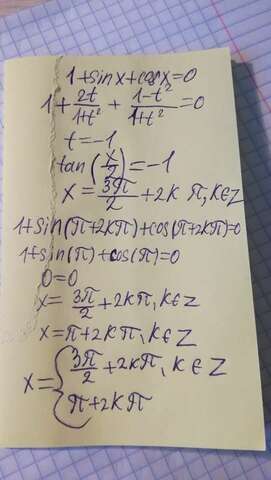 1+sinx+cosx=0
1+2t/1+t²+1-t²/1+t²=0
t=-1
tan(x/2)=-1
x=3π/2+2kπ,k∈Z
1+sin(π+2kπ)+cos(π+2kπ)=0
1+sin(π)+cos(π)=0
0=0
x=3π/2+2kπ,k∈Z
x=π+2kπ,k∈Z
x={3π/2+2kπ,k∈Z
π+2kπ